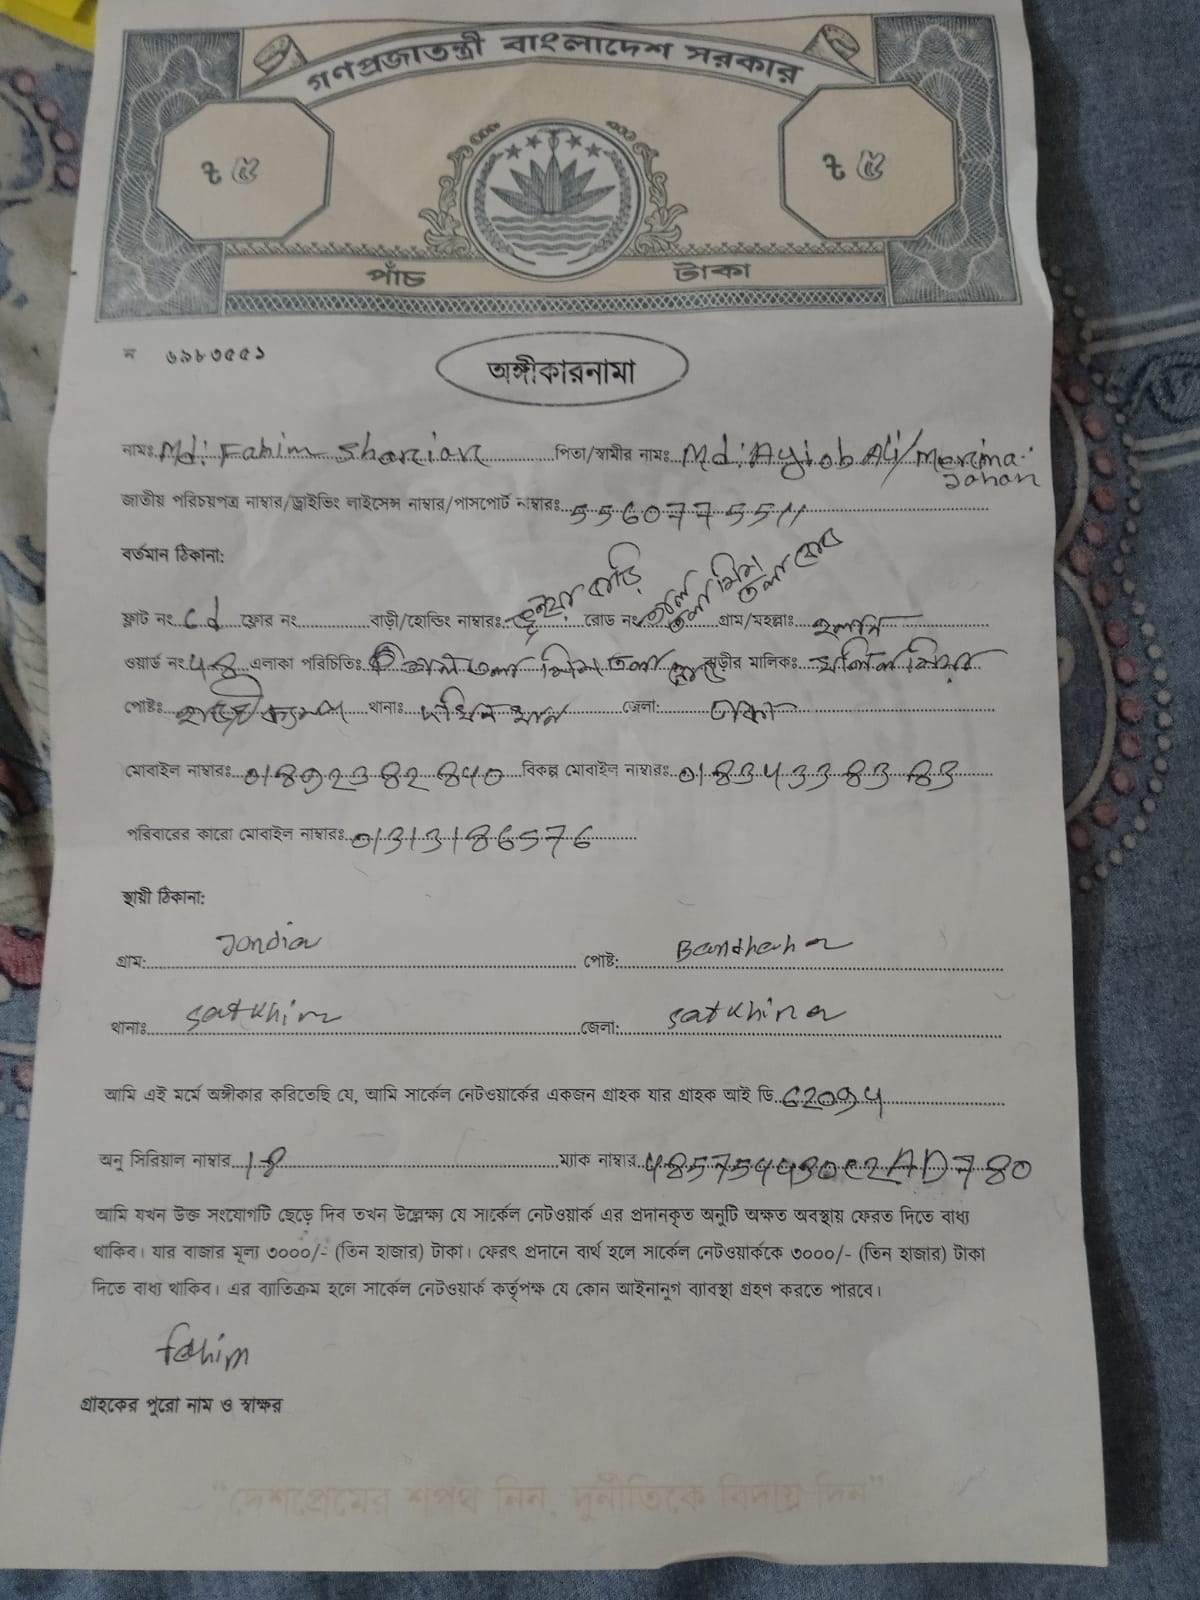 গণপ্রজাতন্ত্রী বাংলাদেশ সরকার
৳ ৫ ৳ ৫
পাঁচ টাকা
ন ৬৯৮৩৫৫১
অঙ্গীকারনামা
নামঃ Md: Fahim Shariar পিতা/স্বামীর নামঃ Md: Ayiob Ali/Merina Jahan
জাতীয় পরিচয়পত্র নাম্বার/ড্রাইভিং লাইসেন্স নাম্বার/পাসপোর্ট নাম্বারঃ 5560775511
বর্তমান ঠিকানা:
ফ্লাট নং Cd ফ্লোর নং বাড়ী/হোল্ডিং নাম্বারঃ বাড়ি রোড নং গ্রাম/মহল্লাঃ
ওয়ার্ড নং 48 এলাকা পরিচিতিঃ তলা বাড়ীর মালিকঃ
পোষ্টঃ থানাঃ দক্ষিনখান জেলা: ঢাকা
মোবাইল নাম্বারঃ 01892382840 বিকল্প মোবাইল নাম্বারঃ 01834338383
পরিবারের কারো মোবাইল নাম্বারঃ 01313186576
স্থায়ী ঠিকানা:
গ্রাম: পোষ্ট:
থানাঃ Satkhira জেলা: Satkhira
আমি এই মর্মে অঙ্গীকার করিতেছি যে, আমি সার্কেল নেটওয়ার্কের একজন গ্রাহক যার গ্রাহক আই ডি C2094
অনু সিরিয়াল নাম্বার 18 ম্যাক নাম্বার 485754430E2AD780
আমি যখন উক্ত সংযোগটি ছেড়ে দিব তখন উল্লেক্ষ্য যে সার্কেল নেটওয়ার্ক এর প্রদানকৃত অনুটি অক্ষত অবস্থায় ফেরত দিতে বাধ্য
থাকিব। যার বাজার মূল্য ৩০০০/- (তিন হাজার) টাকা। ফেরৎ প্রদানে ব্যর্থ হলে সার্কেল নেটওয়ার্ককে ৩০০০/- (তিন হাজার) টাকা
দিতে বাধ্য থাকিব। এর ব্যাতিক্রম হলে সার্কেল নেটওয়ার্ক কর্তৃপক্ষ যে কোন আইনানুগ ব্যাবস্থা গ্রহণ করতে পারবে।
fahim
গ্রাহকের পুরো নাম ও স্বাক্ষর
"দেশপ্রেমের শপথ নিন, দুর্নীতিকে বিদায় দিন"